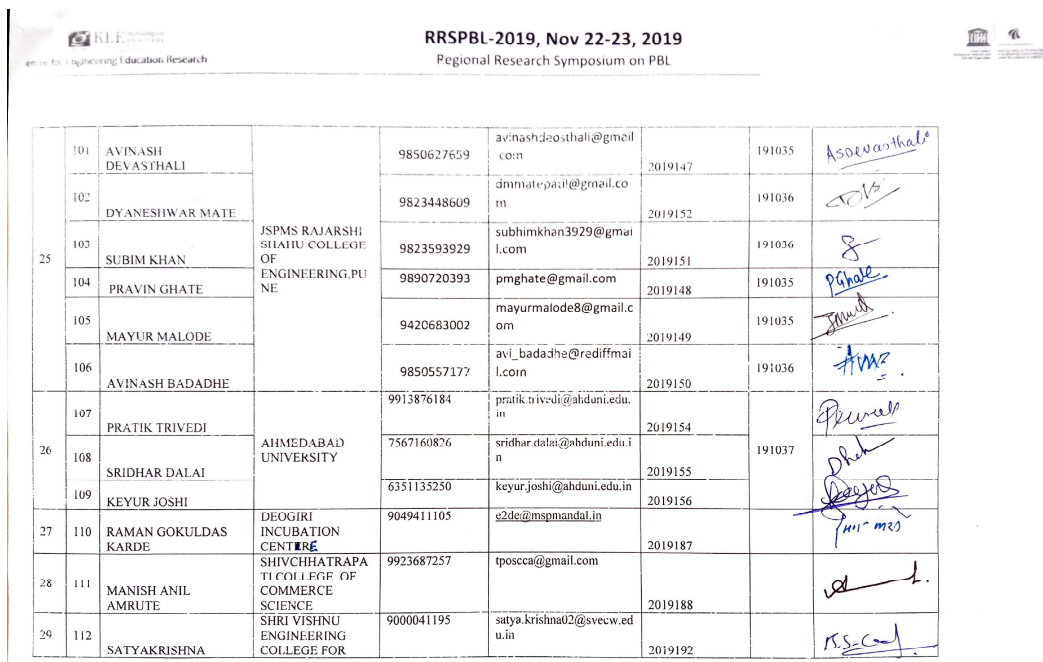 KLE
RRSPBL-2019, Nov 22-23, 2019
Engineering Education Research
Regional Research Symposium on PBL
25
JSPMS RAJARSHI
SHAHU COLLEGE
OF
ENGINEERING,PU
NE
101 AVINASH
DEVASTHALI
9850627659
avinashdeosthali@gmail
.com
2019147
191035
ASDevasthali
102 DYANESHWAR MATE
9823448609
dmmatepatil@gmail.co
m
2019152
191036
103 SUBIM KHAN
9823593929
subhimkhan3929@gmai
l.com
2019151
191036
104 PRAVIN GHATE
9890720393
pmghate@gmail.com
2019148
191035
PGhate
105 MAYUR MALODE
9420683002
mayurmalode8@gmail.c
om
2019149
191035
106 AVINASH BADADHE
9850557177
avi_badadhe@rediffmai
l.com
2019150
191036
26
AHMEDABAD
UNIVERSITY
107 PRATIK TRIVEDI
9913876184
pratik.trivedi@ahduni.edu.
in
2019154
191037
108 SRIDHAR DALAI
7567160826
sridhar.dalai@ahduni.edu.i
n
2019155
109 KEYUR JOSHI
6351135250
keyur.joshi@ahduni.edu.in
2019156
27 110 RAMAN GOKULDAS
KARDE
DEOGIRI
INCUBATION
CENTRE
9049411105
e2de@mspmandal.in
2019187
28 111 MANISH ANIL
AMRUTE
SHIVCHHATRAPA
TI COLLEGE OF
COMMERCE
SCIENCE
9923687257
tposcca@gmail.com
2019188
29 112 SATYAKRISHNA
SHRI VISHNU
ENGINEERING
COLLEGE FOR
9000041195
satya.krishna02@svecw.ed
u.in
2019192